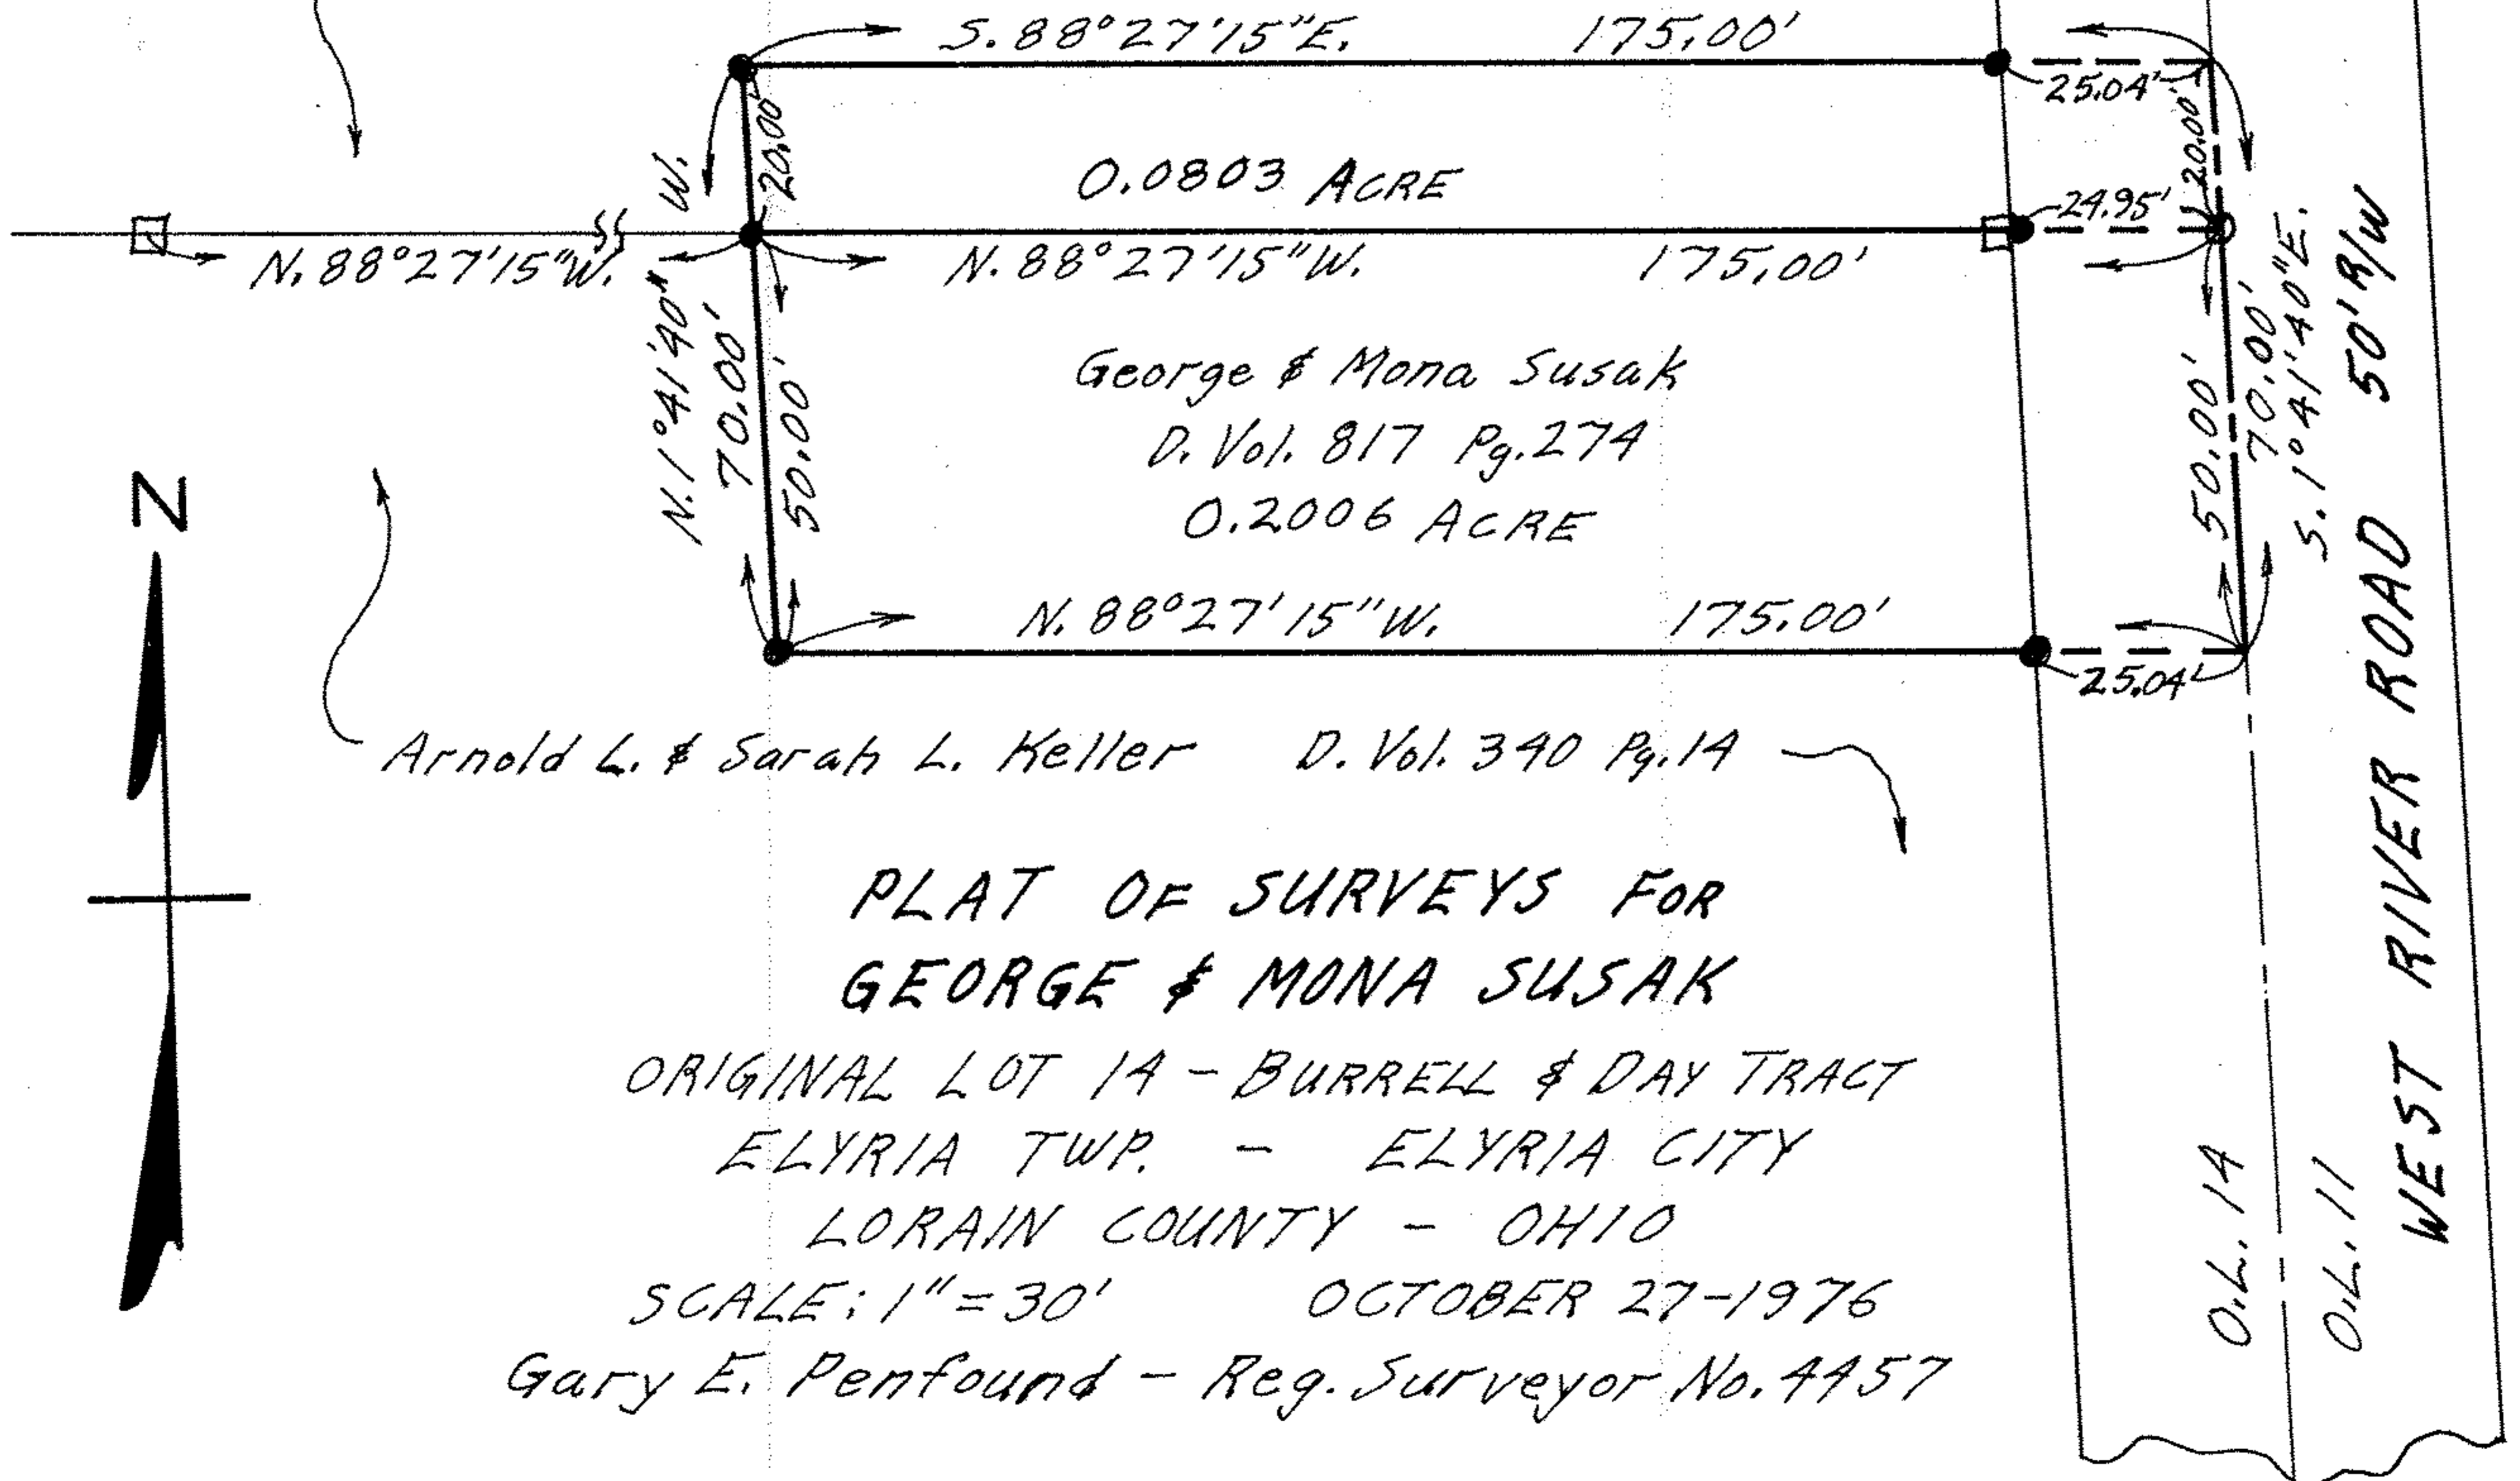 S. 88°27'15"E. 175.00'
25.04'
20.00'
20.00'
0.0803 ACRE
24.95'
N. 88°27'15"W.
N. 88°27'15"W. 175.00'
N. 1°41'40" W.
70.00'
50.00'
George & Mona Susak
D. Vol. 817 Pg. 274
0.2006 ACRE
50.00'
70.00'
S. 1°41'40"E.
N. 88°27'15"W. 175.00'
25.04'
N
Arnold L. & Sarah L. Keller D. Vol. 340 Pg. 14
WEST RIVER ROAD 50' R/W
PLAT OF SURVEYS FOR
GEORGE & MONA SUSAK
ORIGINAL LOT 14 - BURRELL & DAY TRACT
ELYRIA TWP. - ELYRIA CITY
LORAIN COUNTY - OHIO
SCALE: 1" = 30' OCTOBER 27-1976
Gary E. Penfound - Reg. Surveyor No. 4457
O.L. 14
O.L. 11